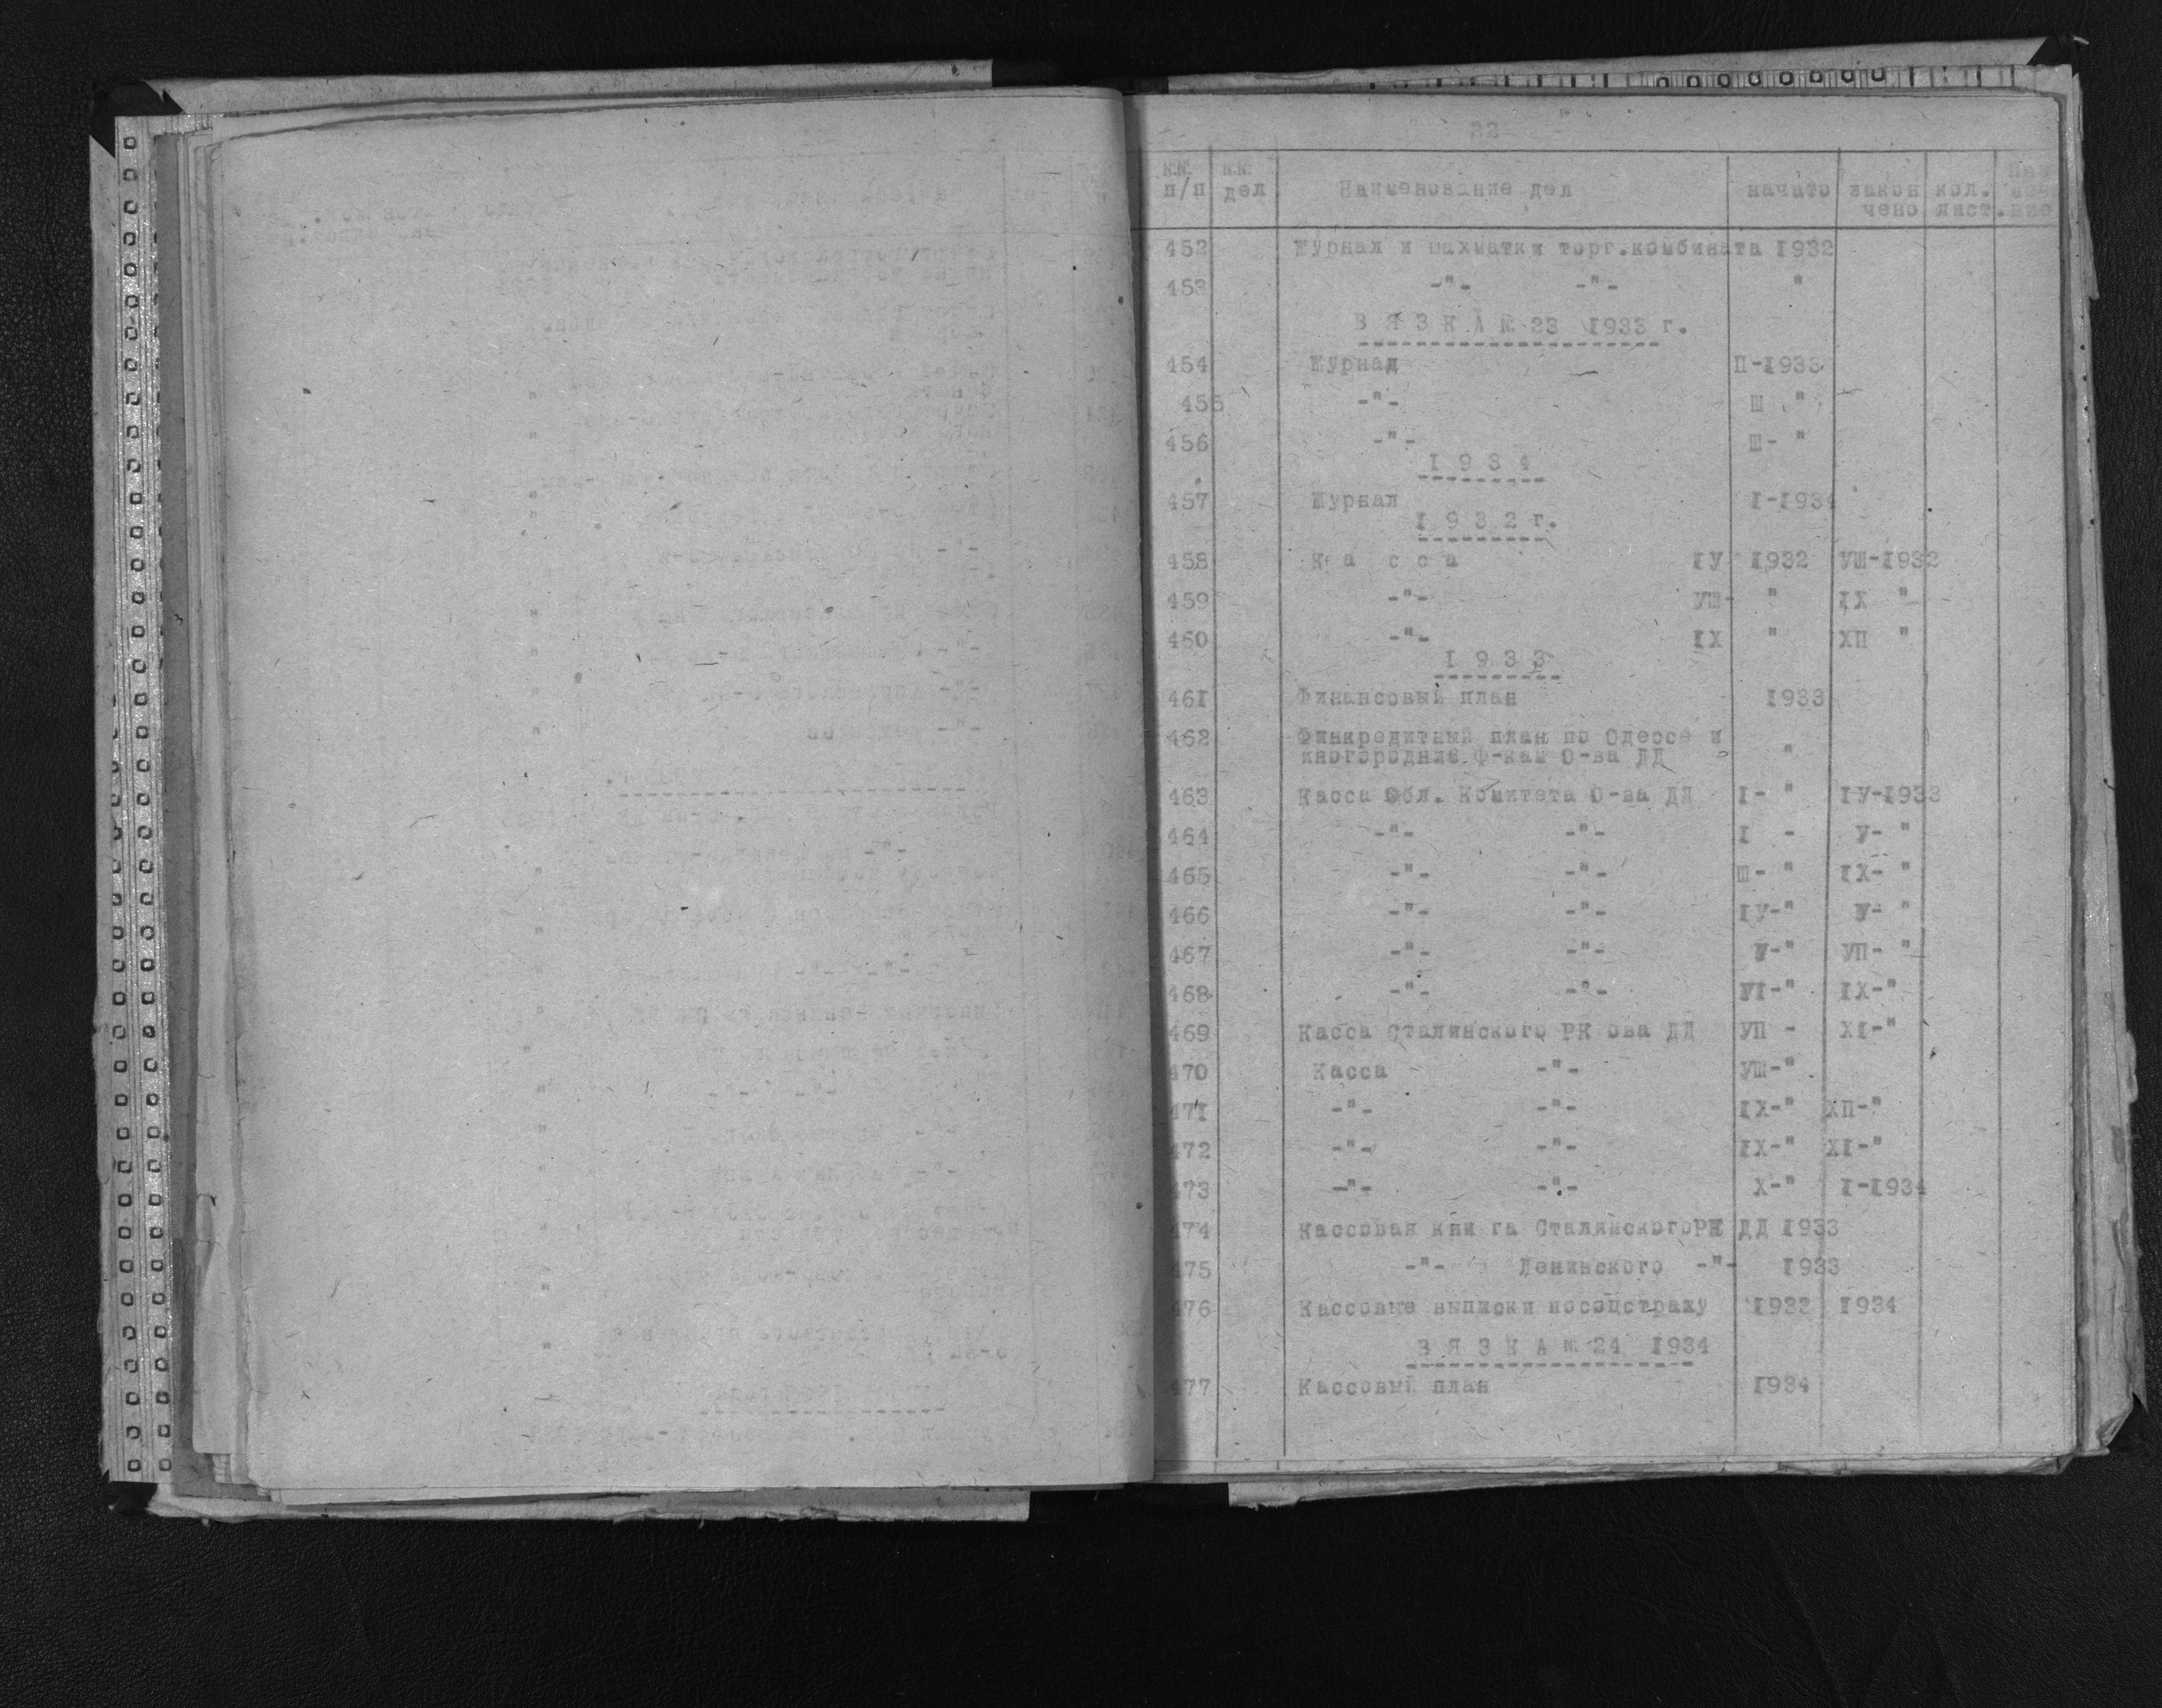 22
№№ п/п №№ дел Наименование дел начато закон кол.
чено лист.
452 Журнал и шахматки торг.комбината 1932
453 -"- -"- "
В Я З К А № 23 1933 г.
454 Журнал П-1933
455 -"- Ш "
456 -"- Ш- "
1 9 3 4
457 Журнал I-1934
1 9 3 2 г.
458 К а с с а IУ 1932 УШ-1932
459 -"- УШ- " IХ "
460 -"- IХ " ХП "
1 9 3 3
461 Финансовый план 1933
462 Финкредитный план по Одессе и
иногородние Ф-кам О-ва ДД "
463 Касса Обл. Комитета О-ва ДД I- " IУ-1933
464 -"- -"- I - У- "
465 -"- -"- Ш- " IХ- "
466 -"- -"- IУ-" У- "
467 -"- -"- У-" УП- "
468 -"- -"- УI-" IХ-"
469 Касса Сталинского РК ова ДД УП - ХI-"
470 Касса -"- УШ-"
471 -"- -"- IХ-" ХП-"
472 -"- -"- IХ-" ХI-"
473 -"- -"- Х-" I-1934
474 Кассовая кни га СталинскогоРК ДД 1933
475 -"- Ленинского -"- 1933
476 Кассовые выписки носоцстраху 1933 1934
В Я З К А № 24 1934
477 Кассовый план 1934